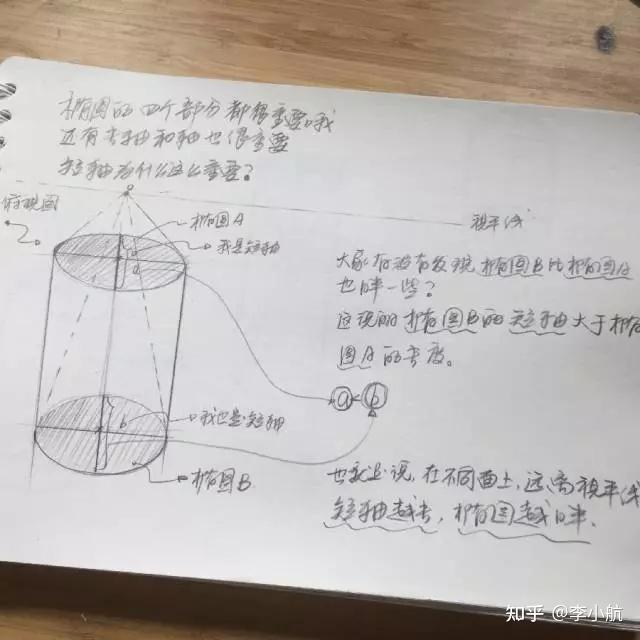 椭圆的四个部分都很重要。我
还有长轴和轴也很重要
短轴为什么这么重要？
俯视图
视平线
椭圆A
我是短轴
a
大家有没有发现椭圆B比椭圆A
也胖一些？
这说明椭圆B的短轴大于椭
圆A的长度。
a<b
b
我也是短轴
椭圆B
也就是说，在不同面上，远离视平线
短轴越长，椭圆越胖。
知乎 @李小航